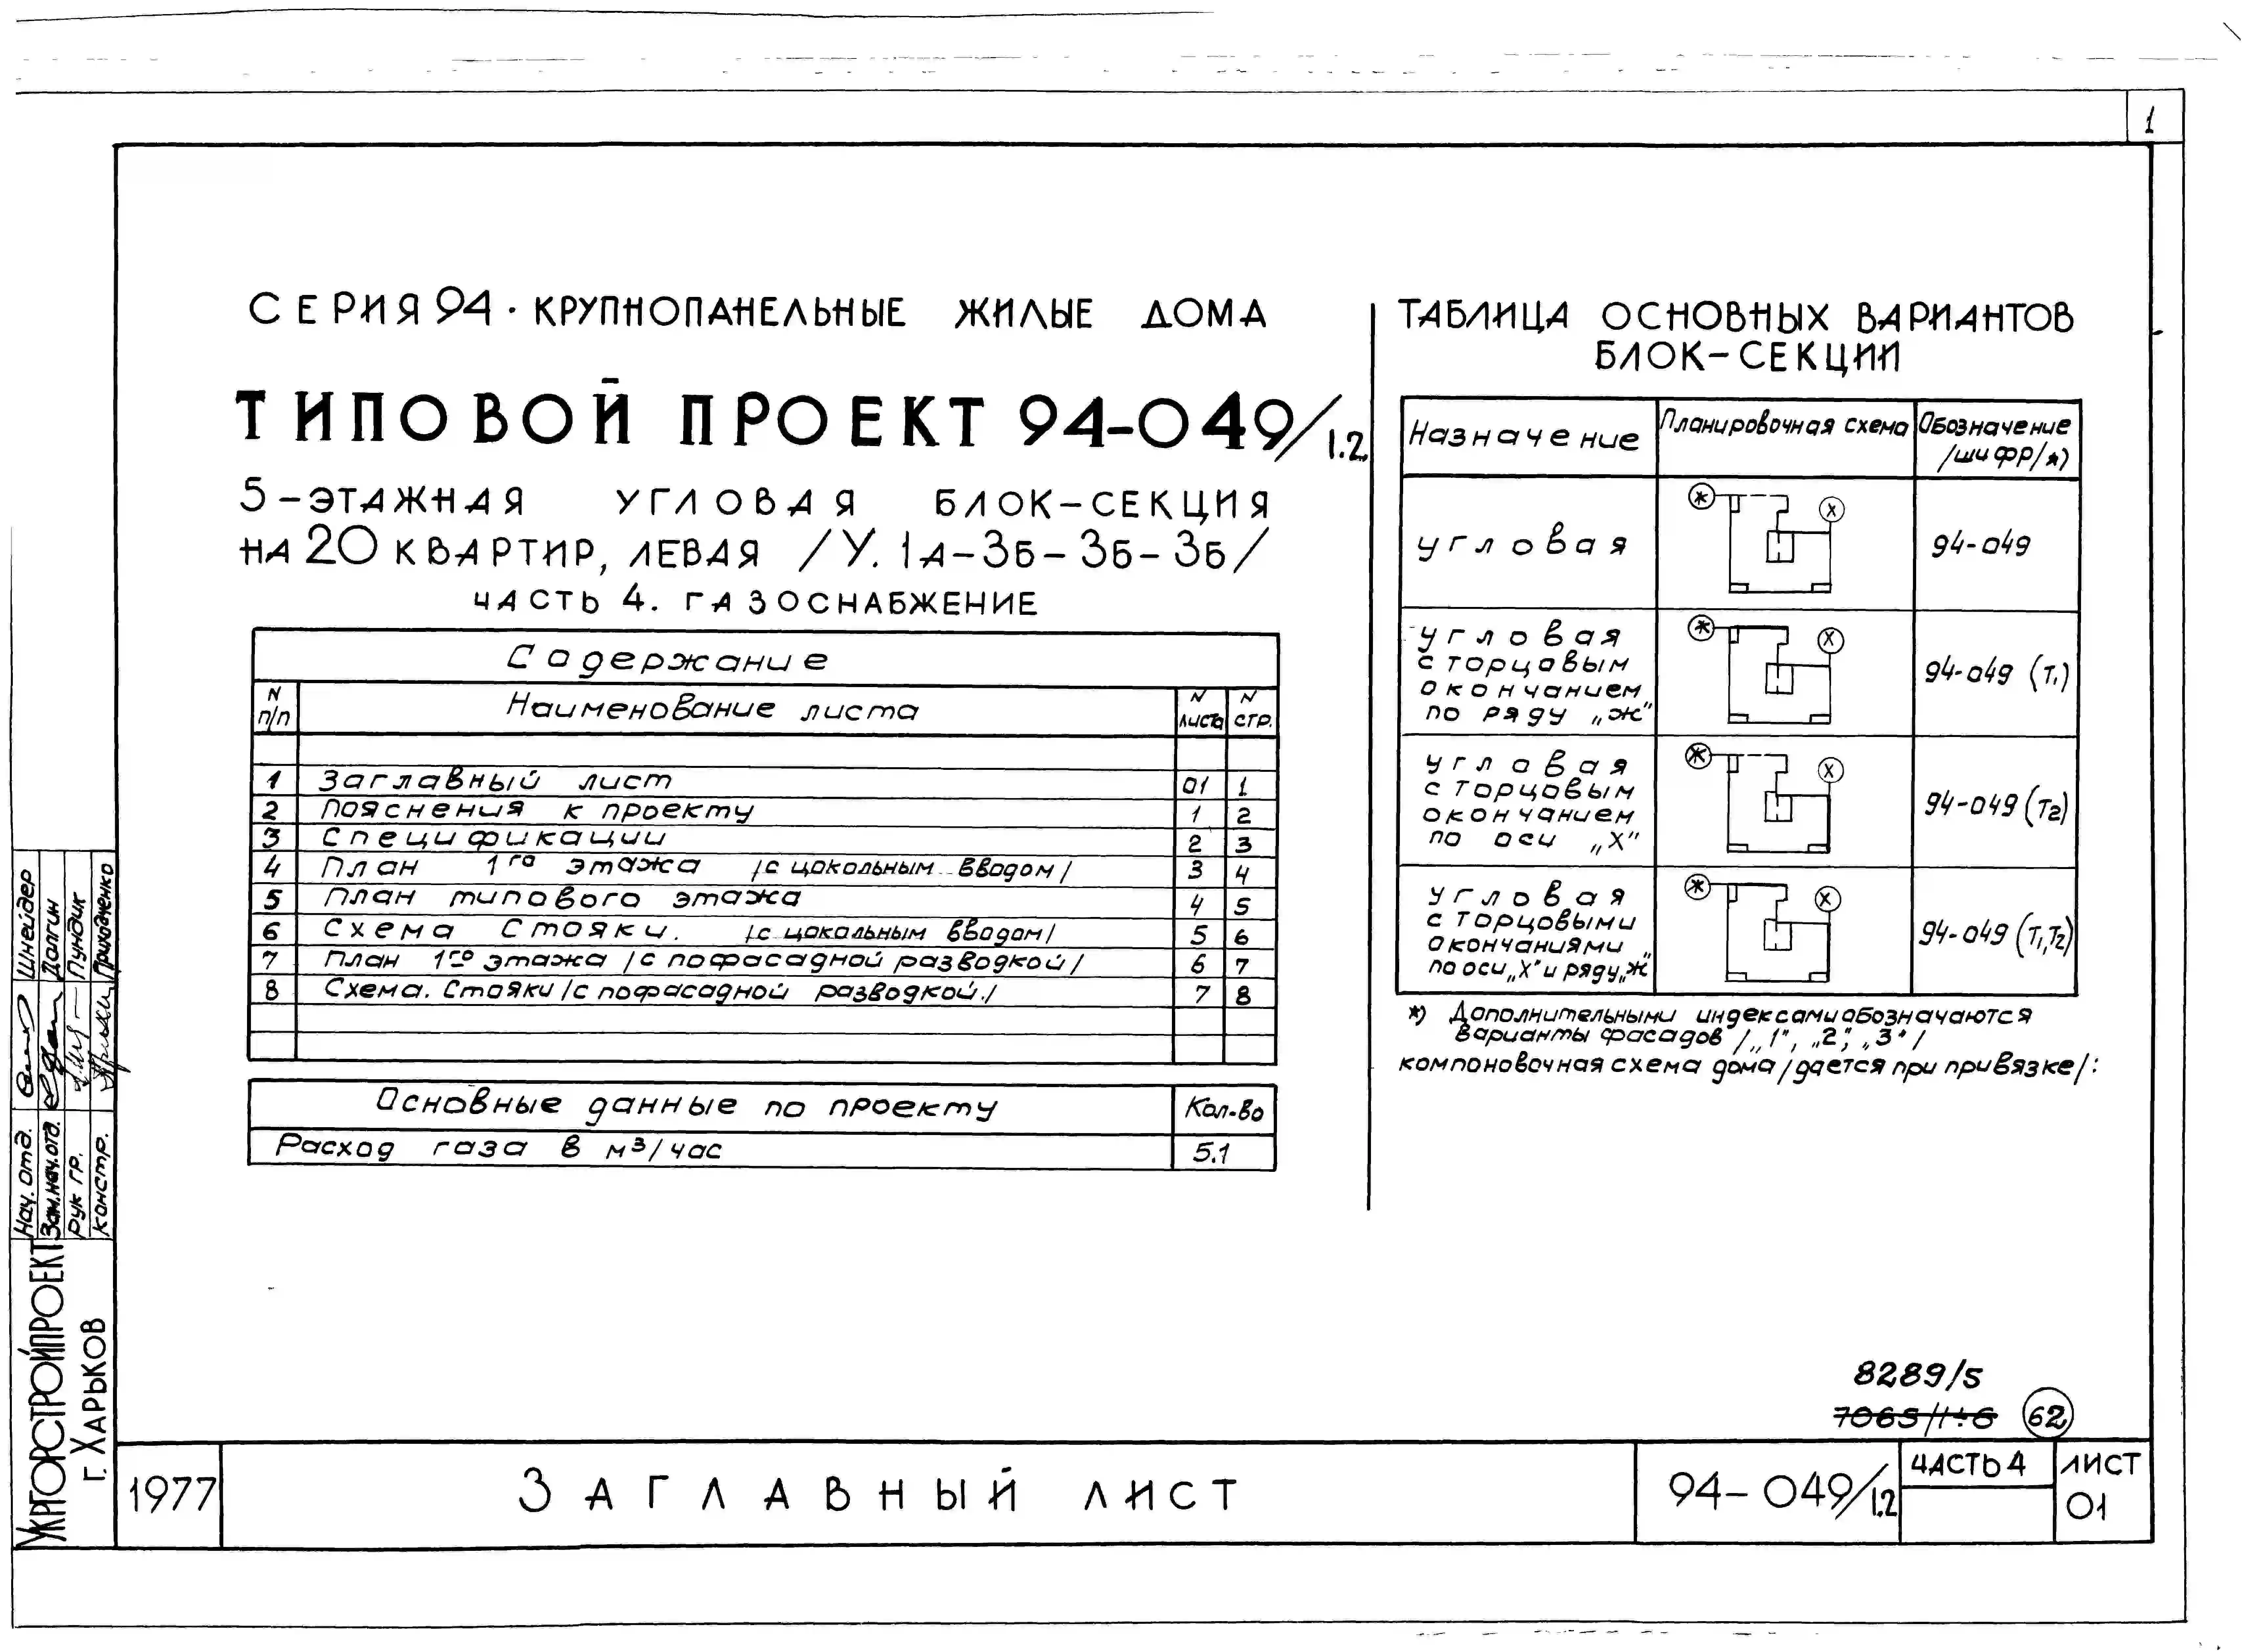 1
СЕРИЯ 94 · КРУПНОПАНЕЛЬНЫЕ ЖИЛЫЕ ДОМА
ТИПОВОЙ ПРОЕКТ 94-049/1.2
5-ЭТАЖНАЯ УГЛОВАЯ БЛОК-СЕКЦИЯ
НА 20 КВАРТИР, ЛЕВАЯ /У. 1А-3Б-3Б-3Б/
ЧАСТЬ 4. ГАЗОСНАБЖЕНИЕ
Содержание
N п/п Наименование листа N листа N стр.
1 Заглавный лист 01 1
2 Пояснения к проекту 1 2
3 Спецификации 2 3
4 План 1го этажа /с цокольным вводом/ 3 4
5 План типового этажа 4 5
6 Схема Стояки. /с цокольным вводом/ 5 6
7 План 1го этажа /с пофасадной разводкой/ 6 7
8 Схема. Стояки /с пофасадной разводкой./ 7 8
Основные данные по проекту Кол-во
Расход газа в м³/час 5.1
ТАБЛИЦА ОСНОВНЫХ ВАРИАНТОВ
БЛОК-СЕКЦИИ
Назначение Планировочная схема Обозначение
/шифр/*)
угловая * Х 94-049
угловая
с торцовым
окончанием
по ряду „Ж"
* Х 94-049 (Т1)
угловая
с торцовым
окончанием
по оси „Х"
* Х 94-049 (Т2)
угловая
с торцовыми
окончаниями
по оси „Х" и ряду „Ж"
* Х 94-049 (Т1,Т2)
*) Дополнительными индексами обозначаются
варианты фасадов /„1", „2", „3"/
компоновочная схема дома /дается при привязке/:
8289/5
7065/1÷6 62
Нач. отд. Шнейдер
Зам.нач.отд. Долгин
Рук гр. Пундик
констр.
УКРГОРСТРОЙПРОЕКТ
г. ХАРЬКОВ
1977 ЗАГЛАВНЫЙ ЛИСТ 94-049/1.2 ЧАСТЬ 4 ЛИСТ
01